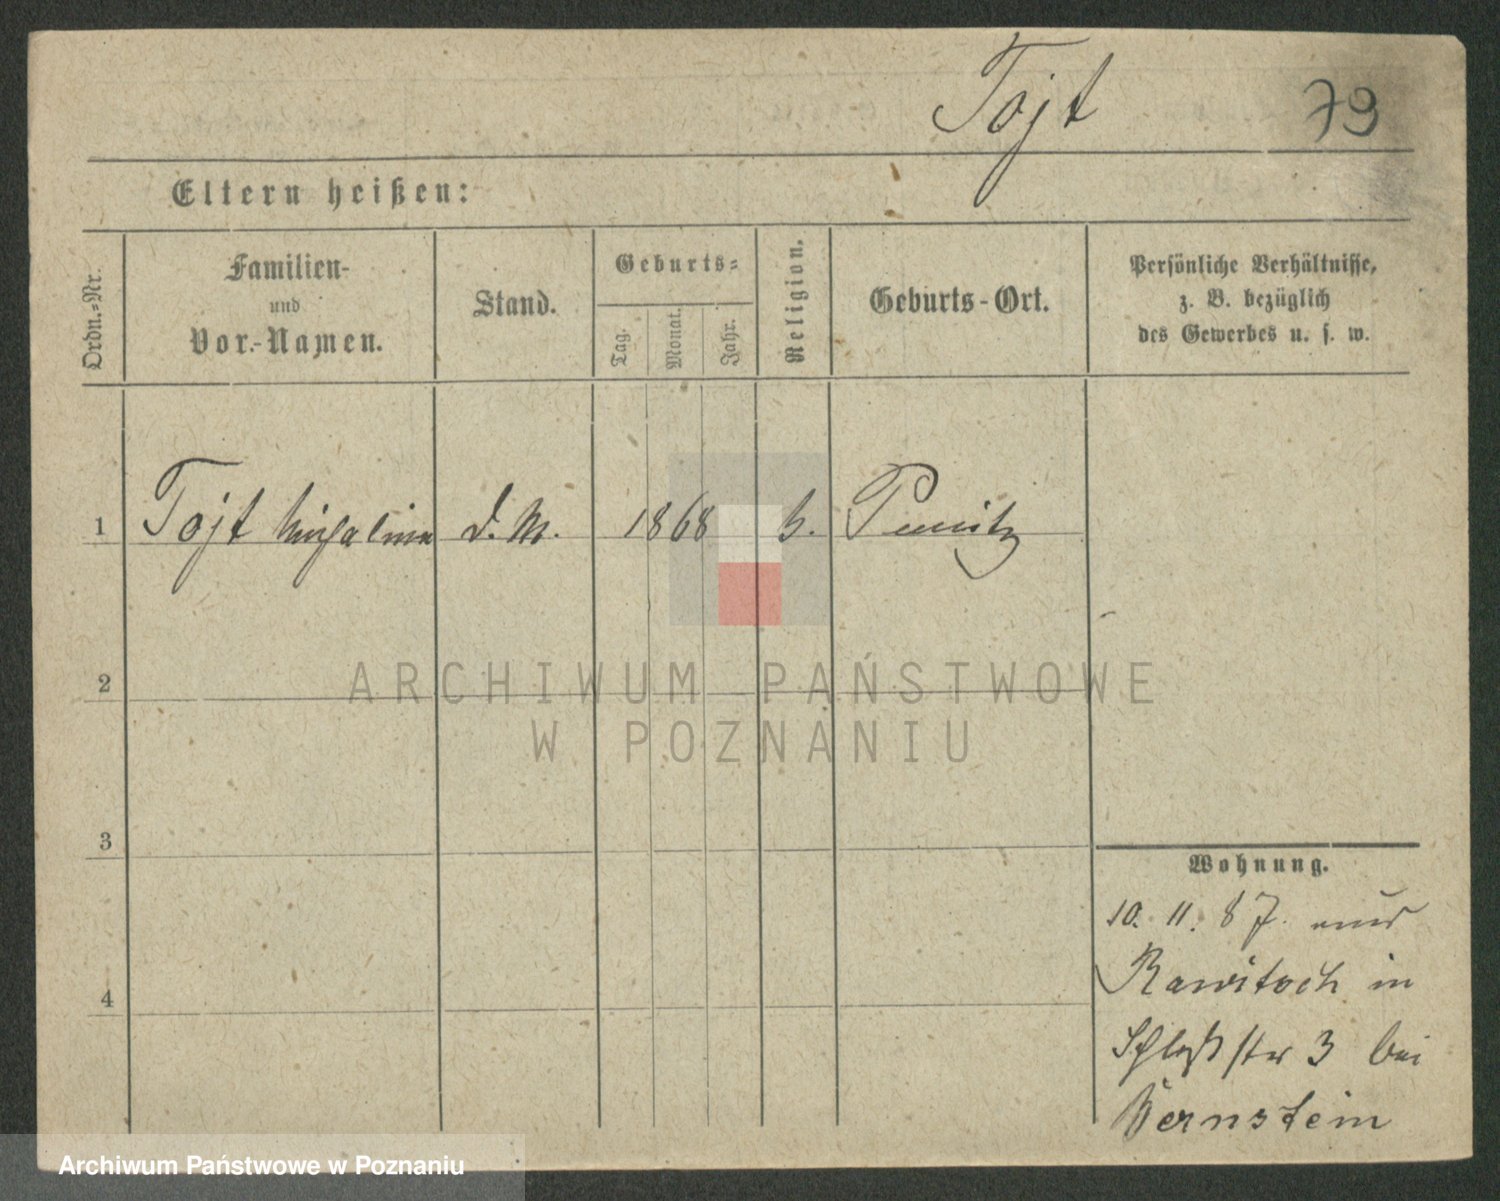 Tojt 79
Eltern heißen:
Ordn.-Nr.
Familien-
und
Vor.-Namen.
Stand.
Geburts-
Tag.
Monat.
Jahr.
Religion.
Geburts-Ort.
Persönliche Verhältnisse,
z. B. bezüglich
des Gewerbes u. s. w.
1 Tojt d. M. 1868 Punitz
2
ARCHIWUM PAŃSTWOWE
W POZNANIU
3
Wohnung.
10. 11. 87. aus
Rawitsch in
4
Schloßstr 3 bei
Bernstein
Archiwum Państwowe w Poznaniu